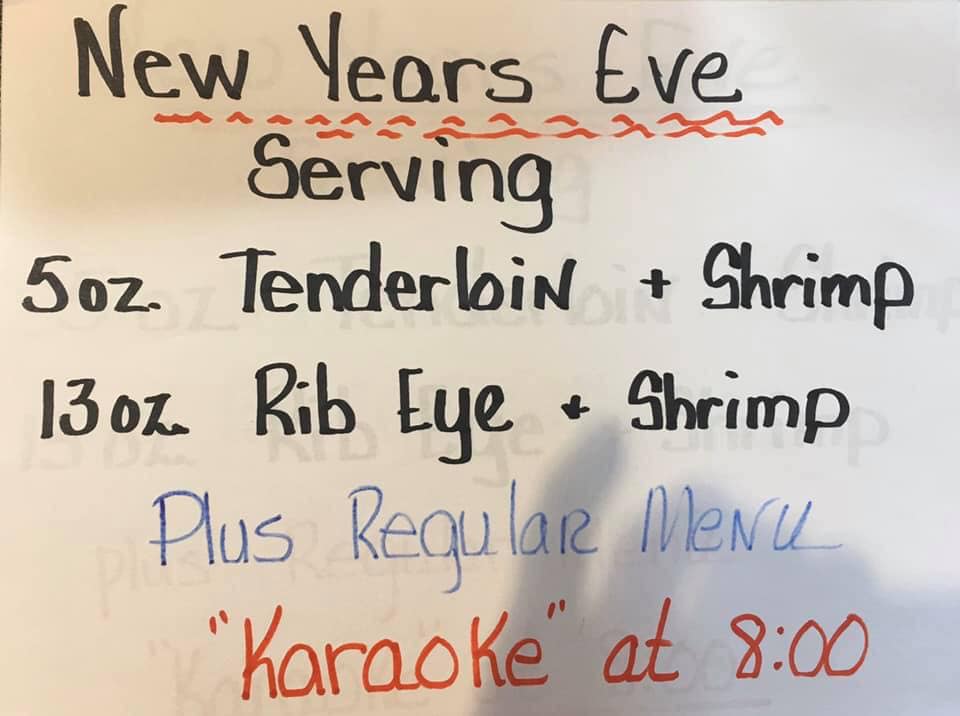 New Years Eve
Serving
5 oz. Tenderloin + Shrimp
13 oz. Rib Eye + Shrimp
Plus Regular Menu
"Karaoke" at 8:00